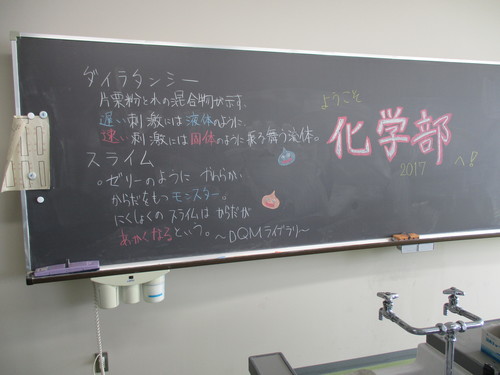 ダイラタンシー
片栗粉と水の混合物が示す、
遅い刺激には液体のように、
速い刺激には固体のように振る舞う流体。
スライム
。ゼリーのように やわらかい
からだをもつモンスター。
にくしょくの スライムは からだが
あかくなるという。
～DQMライブラリ～
ようこそ
化学部
2017
へ!!